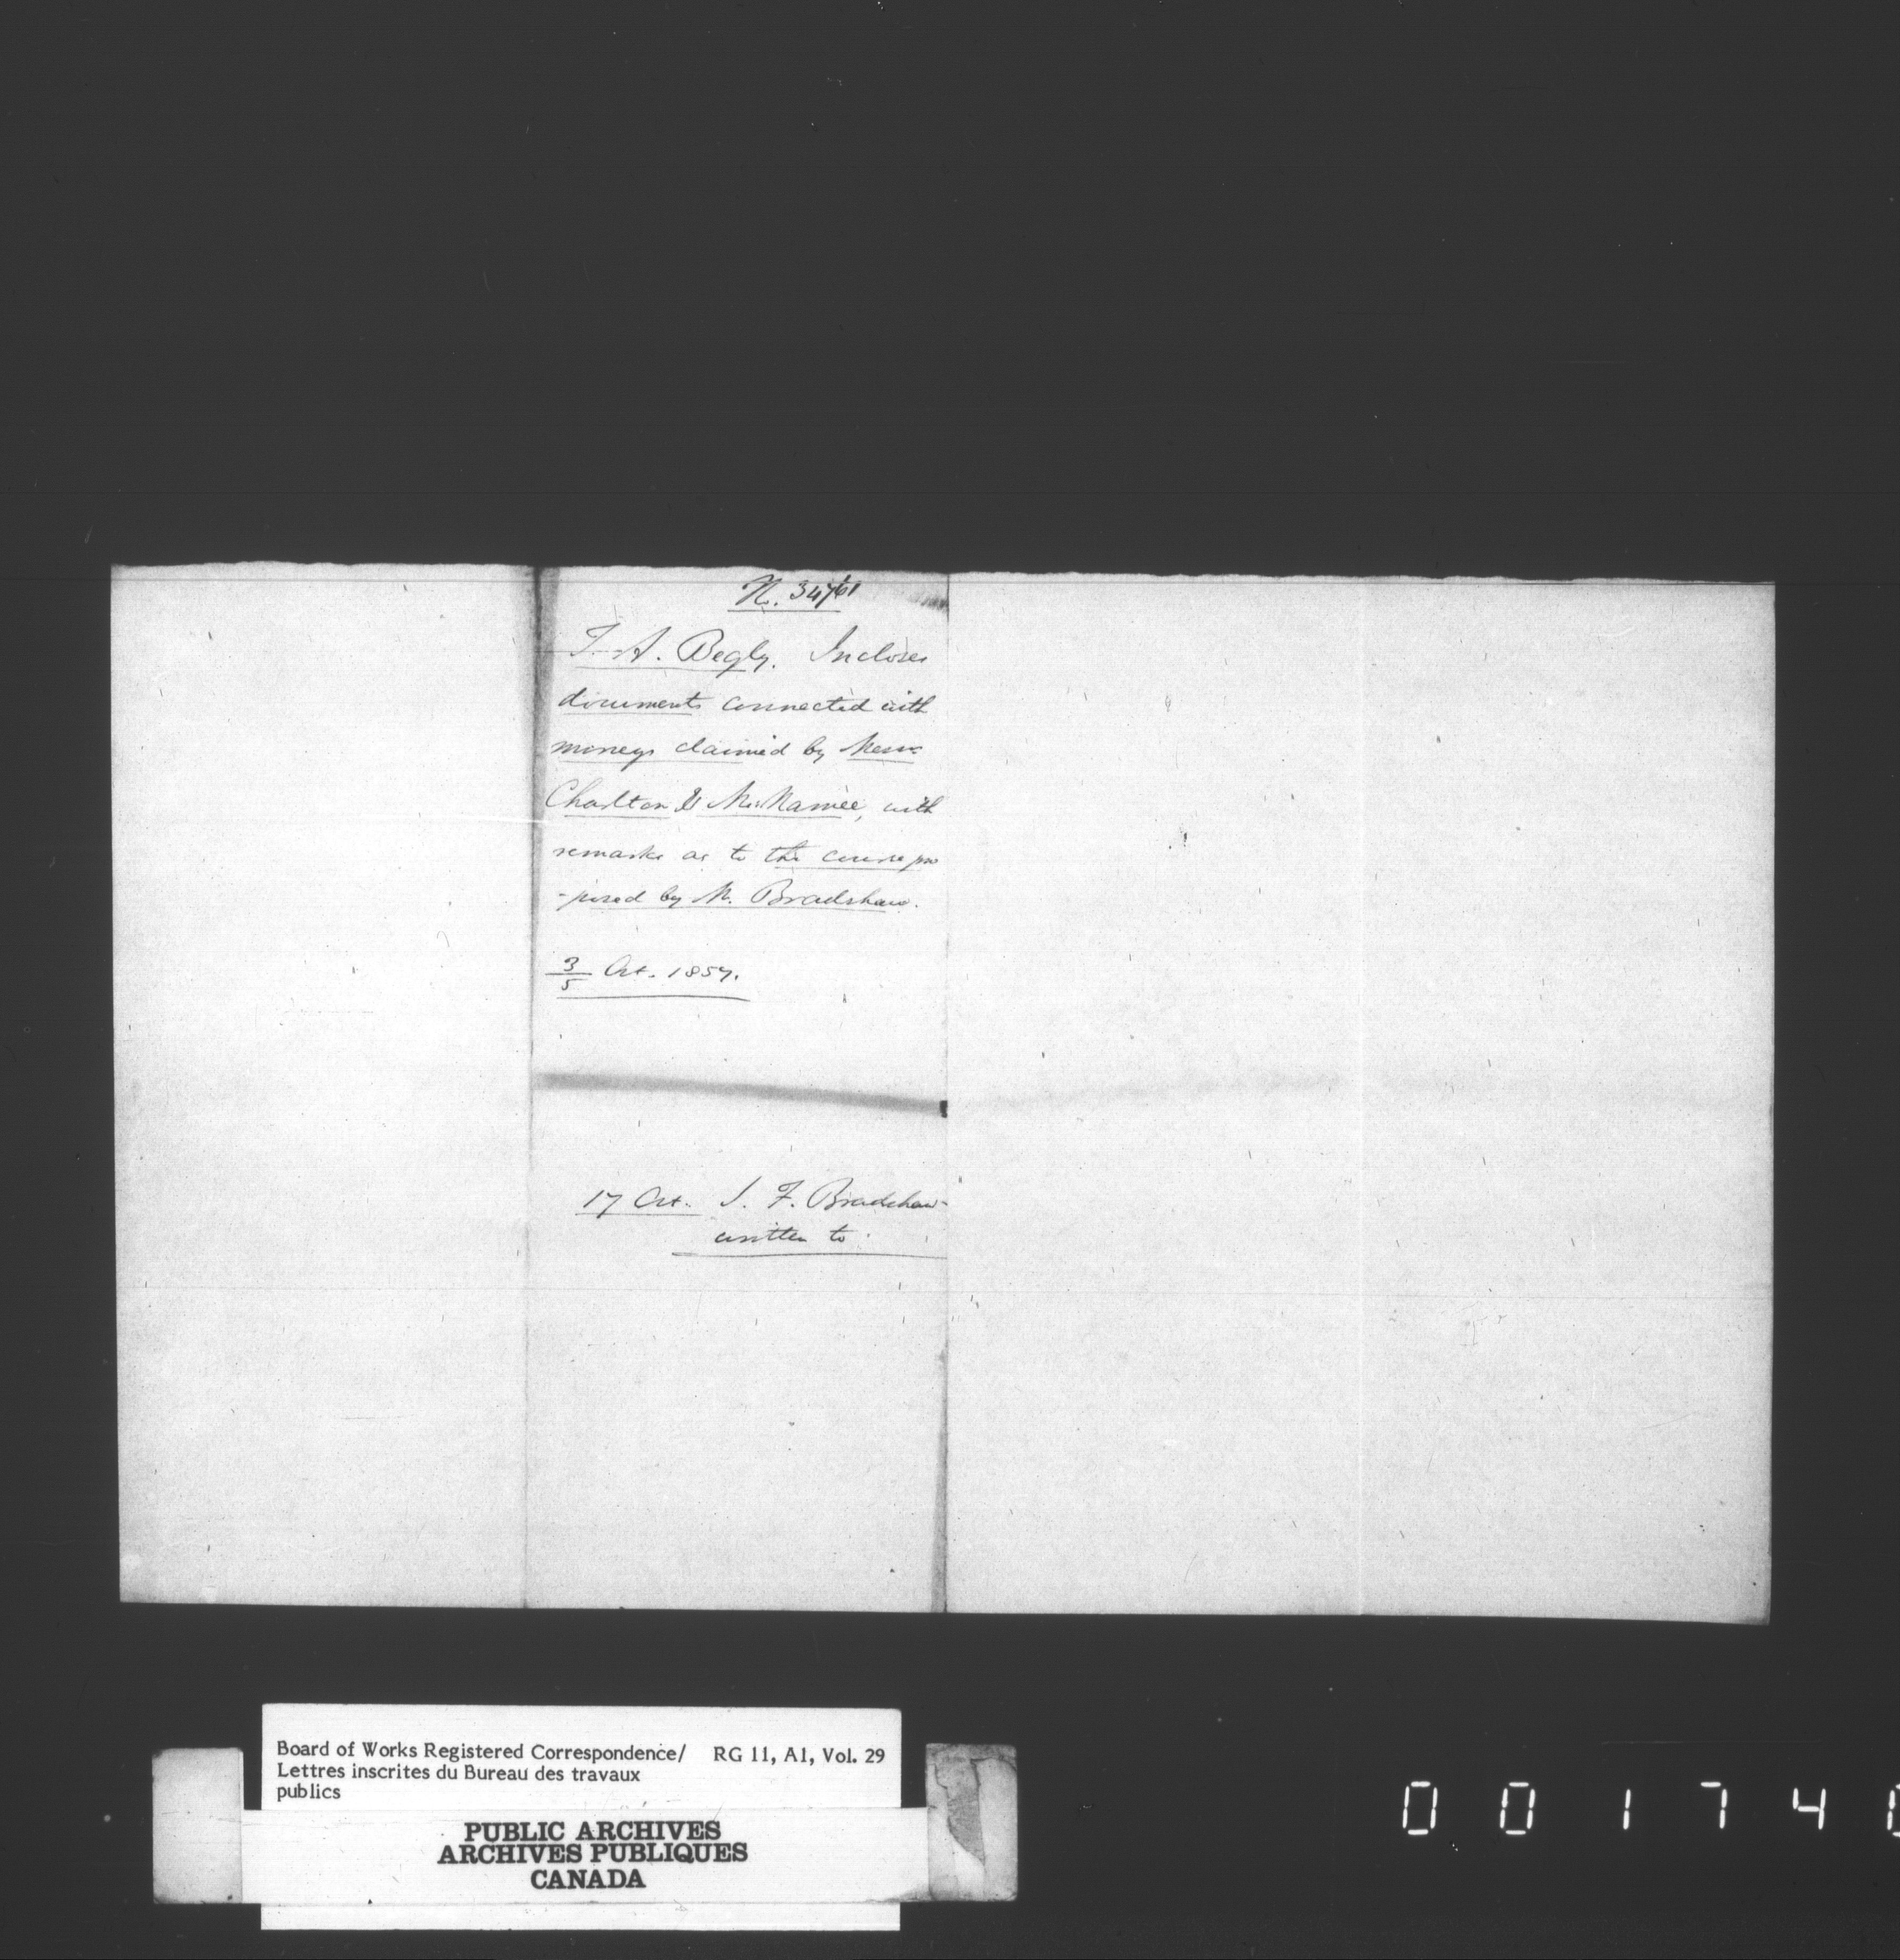 No. 34761
T. A. Begly. Incloses
documents connected with
moneys claimed by Messrs
Charlton & McNamee, with
remarks as to the course pro
-posed by Mr. Bradshaw.
3/5 Oct. 1857.
17 Oct. J. F. Bradshaw
written to
Board of Works Registered Correspondence/ RG 11, A1, Vol. 29
Lettres inscrites du Bureau des travaux
publics
PUBLIC ARCHIVES
ARCHIVES PUBLIQUES
CANADA
0 0 1 7 4